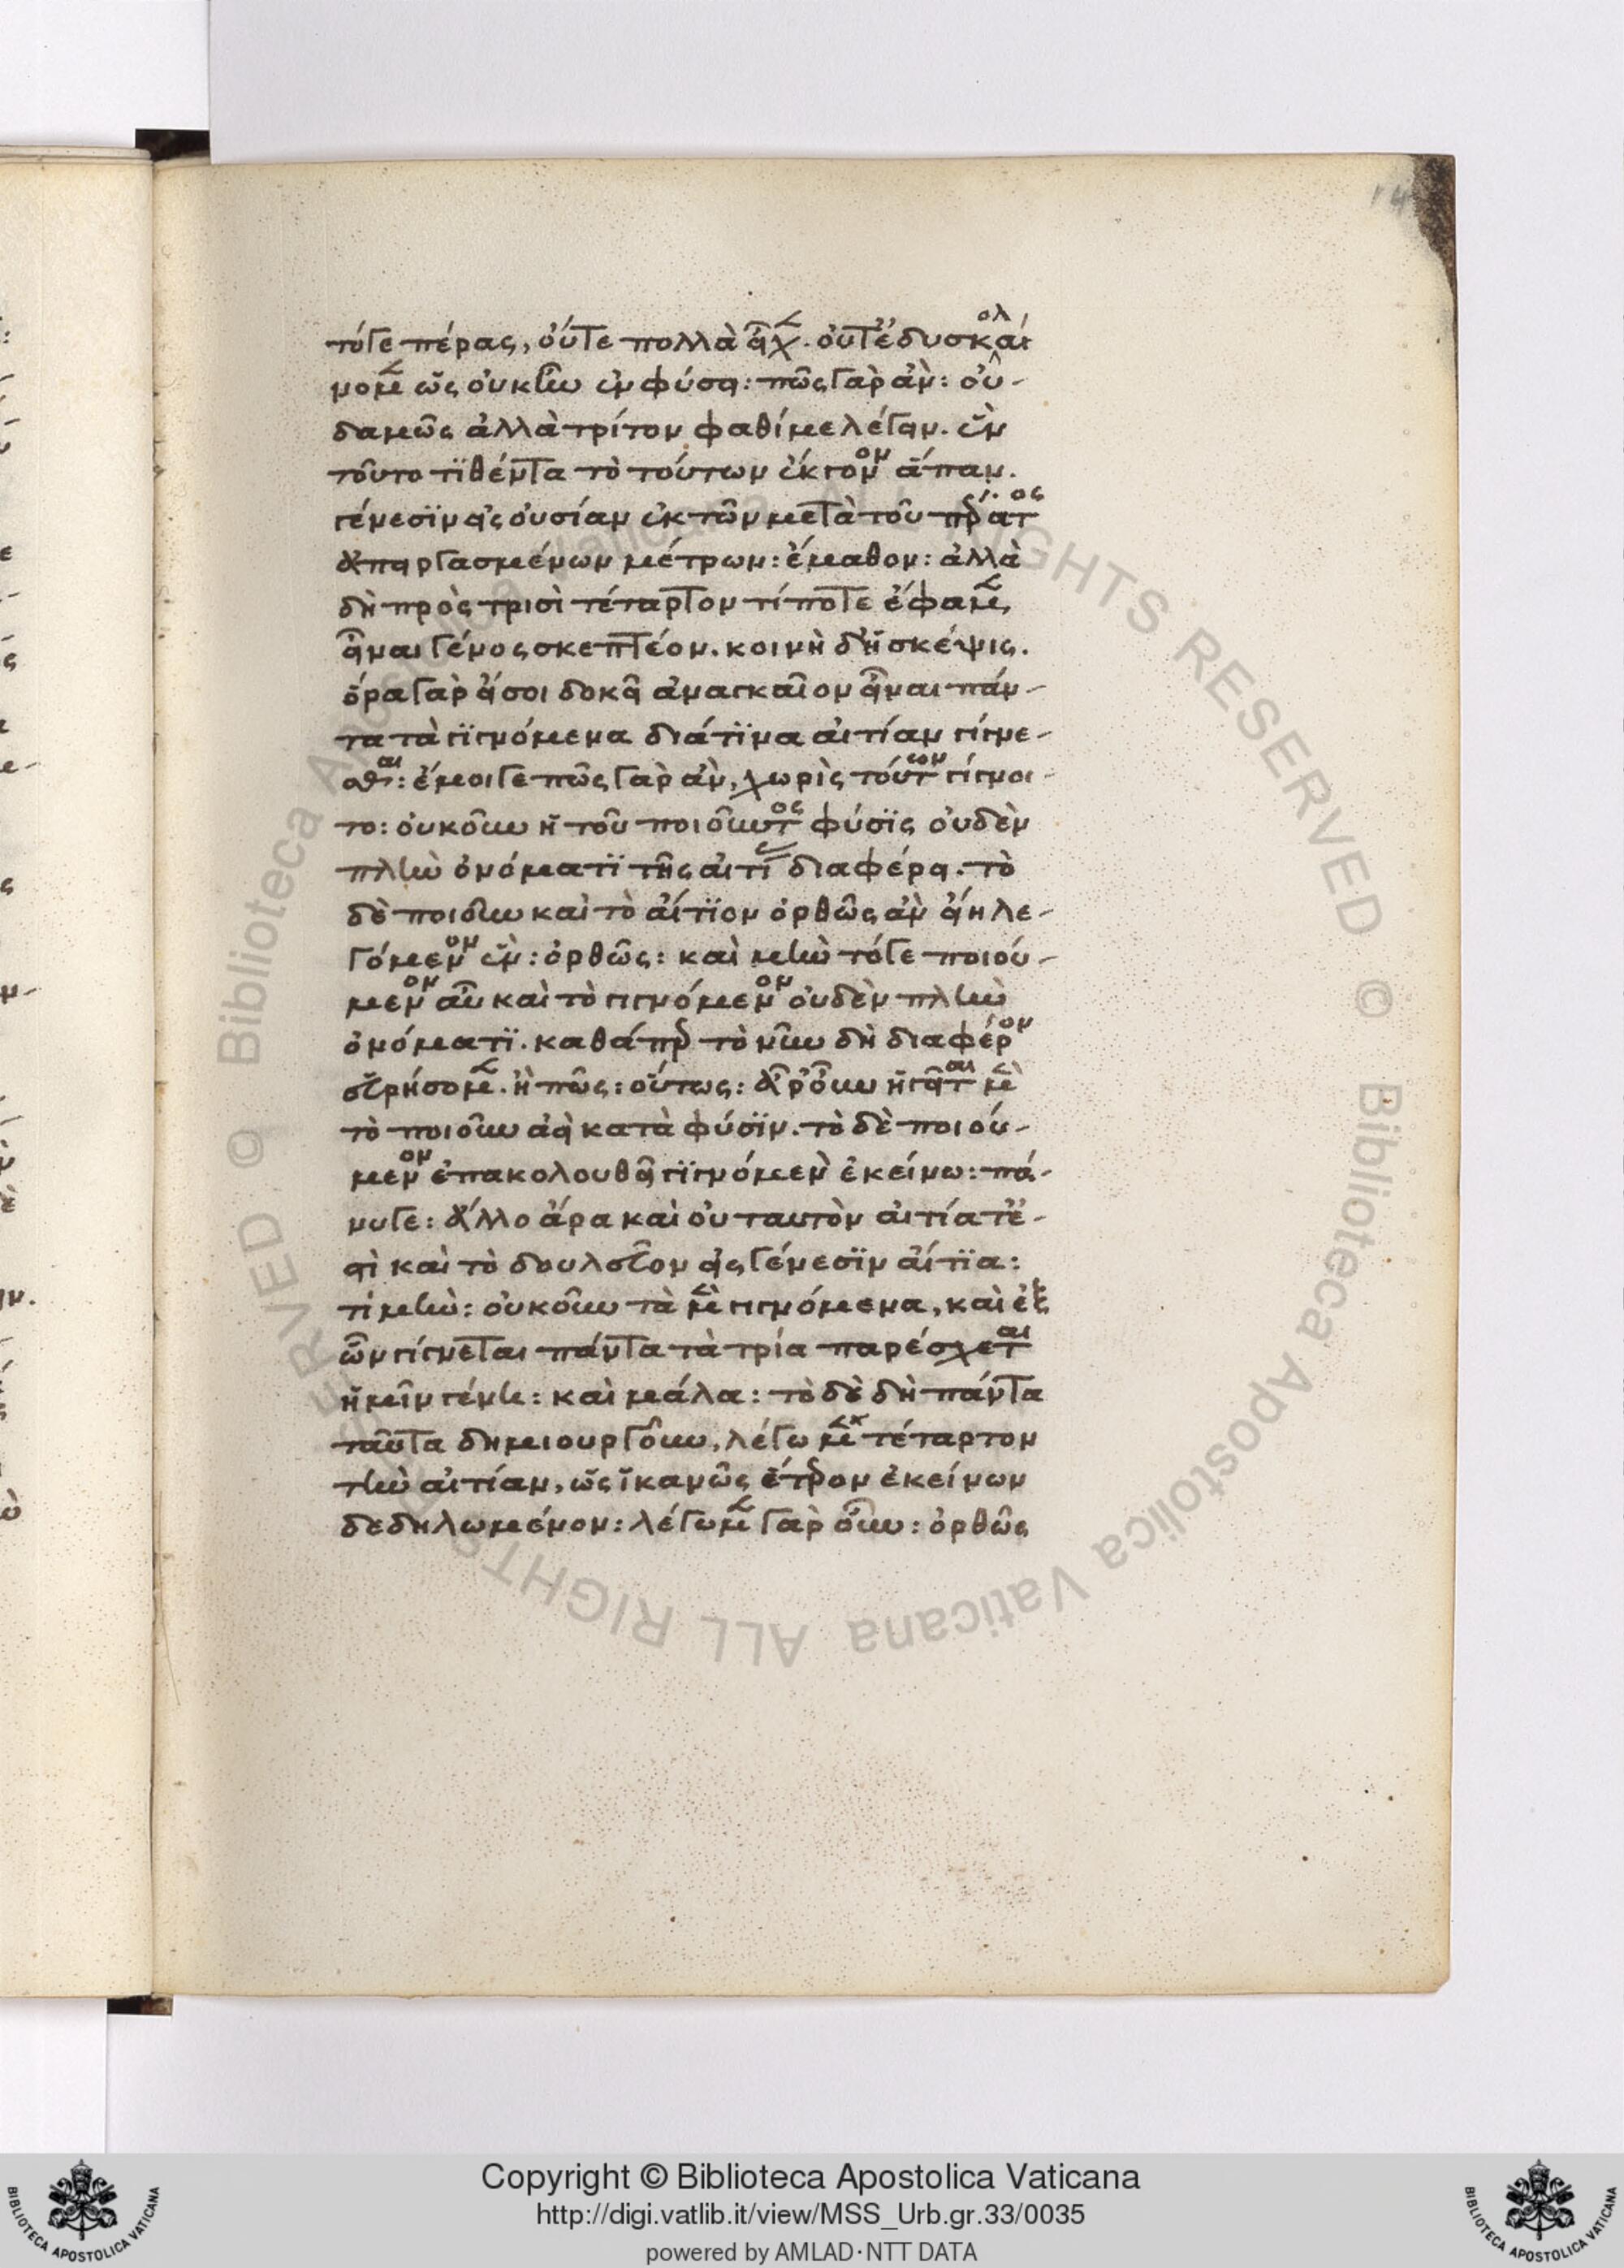 14
τόγε πέρας, οὔτε πολλὰ εἶχεν. οὔτ' ἐδυσκολαί
νομεν ὡς οὐκ ἦν ἓν φύσει: πῶς γὰρ ἄν: οὐ-
δαμῶς ἀλλὰ τρίτον φαθί με λέγειν. ἓν
τοῦτο τιθέντα τὸ τούτων ἔκγονον ἅπαν.
γένεσιν εἰς οὐσίαν ἐκ τῶν μετὰ τοῦ πέρατος
ἀπειργασμένων μέτρων: ἔμαθον: ἀλλὰ
δὴ πρὸς τρισὶ τέταρτον τί ποτε ἔφαμεν,
εἶναι γένος σκεπτέον. κοινὴ δ' ἡ σκέψις.
ὅρα γὰρ εἴ σοι δοκεῖ ἀναγκαῖον εἶναι πάν-
τα τὰ γιγνόμενα διά τινα αἰτίαν γίγνε-
σθαι: ἔμοιγε πῶς γὰρ ἂν, χωρὶς τούτων γίγνοι-
το: οὐκοῦν ἡ τοῦ ποιοῦντος φύσις οὐδὲν
πλὴν ὀνόματι τῆς αἰτίας διαφέρει. τὸ
δὲ ποιοῦν καὶ τὸ αἴτιον ὀρθῶς ἂν εἴη λε-
γόμενον ἕν: ὀρθῶς: καὶ μὴν τόγε ποιού-
μενον αὖ καὶ τὸ γιγνόμενον οὐδὲν πλὴν
ὀνόματι. καθάπερ τὸ νῦν δὴ διαφέρον
εὑρήσομεν. ἢ πῶς: οὕτως: ἆρ' οὖν ἡγεῖται μὲν
τὸ ποιοῦν ἀεὶ κατὰ φύσιν. τὸ δὲ ποιού-
μενον ἐπακολουθεῖ γιγνόμενον ἐκείνω: πά-
νυγε: ἄλλο ἄρα καὶ οὐ ταυτὸν αἰτία τ' ἐ-
στὶ καὶ τὸ δουλεῦον εἰς γένεσιν αἰτία:
τί μήν: οὐκοῦν τὰ μὲν γιγνόμενα, καὶ ἐξ
ὧν γίγνεται πάντα τὰ τρία παρέσχεται
ἡμῖν γένη: καὶ μάλα: τὸ δὲ δὴ πάντα
ταῦτα δημιουργοῦν, λέγωμεν τέταρτον
τὴν αἰτίαν, ὡς ἱκανῶς ἕτερον ἐκείνων
δεδηλωμένον: λέγωμεν γὰρ οὖν: ὀρθῶς
Copyright © Biblioteca Apostolica Vaticana
http://digi.vatlib.it/view/MSS_Urb.gr.33/0035
powered by AMLAD·NTT DATA
BIBLIOTECA APOSTOLICA VATICANA
BIBLIOTECA APOSTOLICA VATICANA
© Biblioteca Apostolica Vaticana ALL RIGHTS RESERVED © Biblioteca Apostolica Vaticana ALL RIGHTS RESERVED